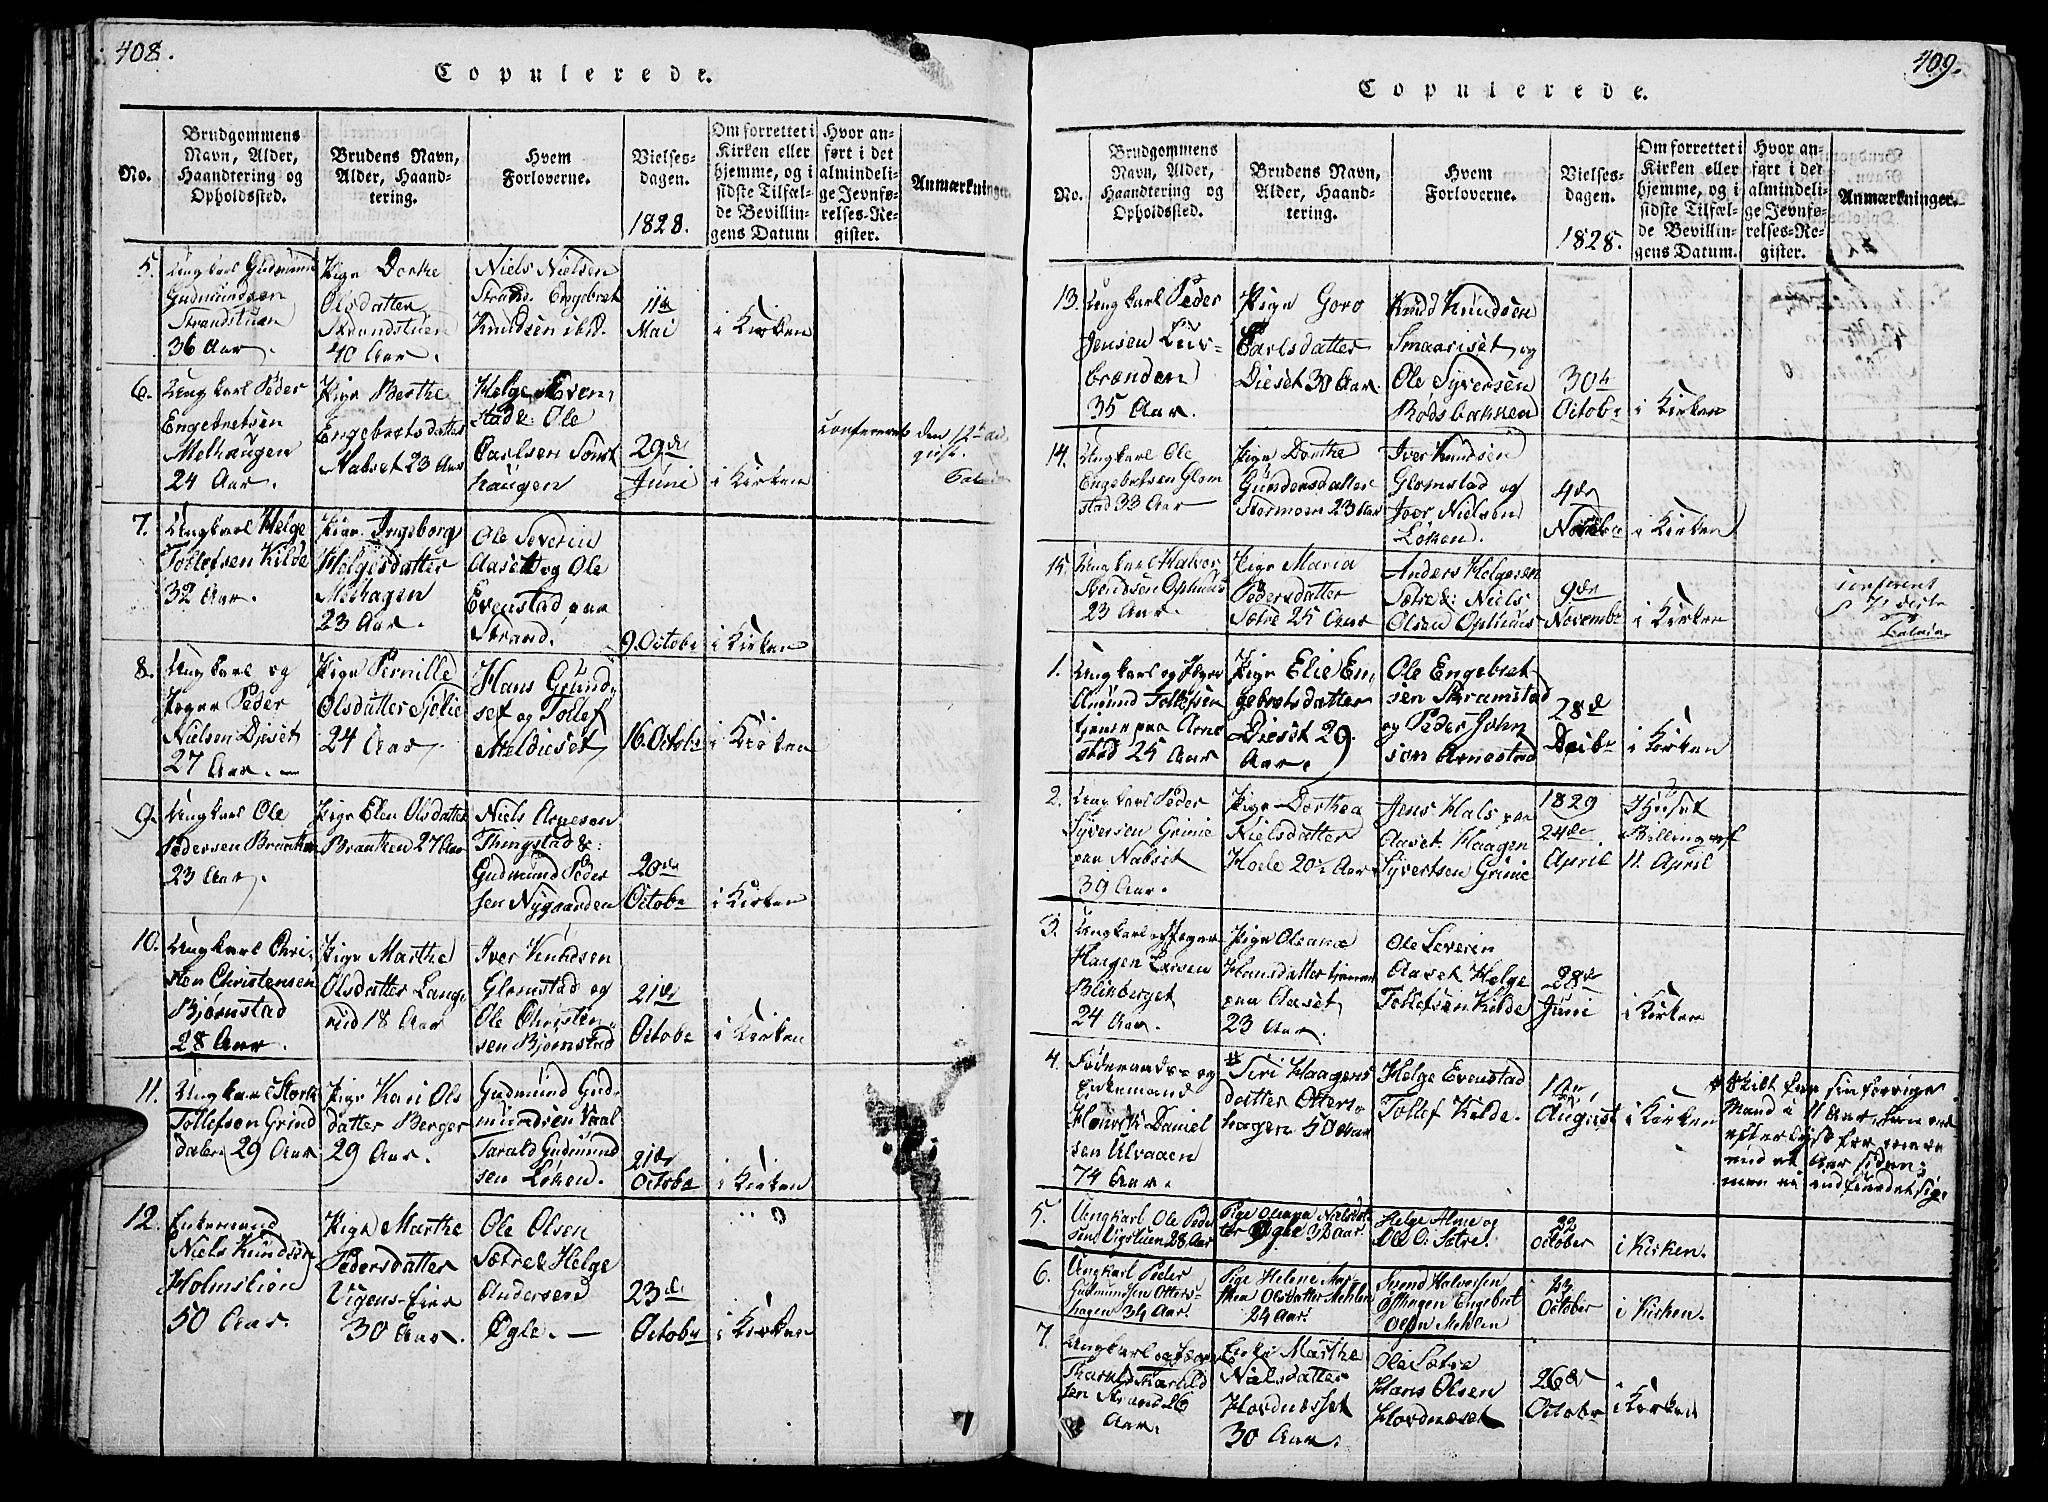 408.
Copulerede.
No.
Brudgommens
Navn, Alder,
Haandtering og
Opholdssted.
Brudens Navn,
Alder, Haand-
tering.
Hvem
Forloverne.
Vielses-
dagen.
1828.
Om forrettet i
Kirken eller
hjemme, og i
sidste Tilfæl-
de Bevillin-
gens Datum
Hvor an-
ført i det
almindeli-
ge Jevnfø-
relses-Re-
gister.
Anmærkninger
5.
Ungkarl Gudmund
Gudmundsen
Strandstuen
36 Aar.
Pige Dorke
Olsdatter
Strandstuen
40 Aar.
Niels Nielsen
Strand. Engebret
Knudsen ibid.
11te
Mai
i Kirken
6.
Ungkarl Peder
Engebretsen
Melhaugen
24 Aar.
Pige Berthe
Engebretsdatter
Nabset 23 Aar
Helge Even-
stad & Ole
Carlsen
haugen
29de
Juni
i Kirken
confereret den 12t
7.
Ungkarl Helge
Tollefsen Kilde
32 Aar.
Pige Ingeborg
Helgesdatter
Melhagen
23 Aar.
Ole Severin
Aaset og Ole
Evenstad paa
Strand.
9. Octobr
i Kirken
8.
Ungkarl og
Jæger Peder
Nielsen Djeset
27 Aar. —
Pige Pernille
Olsdatter Sjølie
24 Aar.
Hans Grund-
set og Tollef
Meldieset
16. Octobr
i Kirken
9.
Ungkarl Ole
Pedersen Braaten
23 Aar.
Pige Elen Olsdatter
Braaten 27 Aar
Niels Arnesen
Thingstad &
Gudmund Peder
sen Nygaarden
20de
Octobr
i Kirken
10.
Ungkarl Chri-
sten Christensen
Bjørnstad
28 Aar.
Pige Marthe
Olsdatter Lang-
rud 18 Aar
Iver Knudsen
Glomstad og
Ole Christen-
sen Bjørnstad
21de
Octobr
i Kirken
11.
Ungkarl Stork
Tollefsen Grind
dalen 29 Aar
Pige Kari Ols
datter Berger
29 Aar.
Gudmund Gud-
mundsen Vaal
Tarald Gudmund
sen Løken.
21de
Octobr
i Kirken
12.
Enkemand
Niels Knudsen
Holmstien
50 Aar.
Pige Marthe
Pedersdatter
Vigens-Eier
30 Aar.
Ole Olsen
Sætre & Helge
Andersen
Øgle. —
23de
Octobr
i Kirken
409.
Copulerede.
No.
Brudgommens
Navn, Alder,
Haandtering og
Opholdssted.
Brudens Navn,
Alder, Haand-
tering.
Hvem
Forloverne.
Vielses-
dagen.
1828.
Om forrettet i
Kirken eller
hjemme, og i
sidste Tilfæl-
de Bevillin-
gens Datum.
Hvor an-
ført i det
almindeli-
ge Jevnfø-
relses-Re-
gister.
Anmærkninger.
13.
Ungkarl Peder
Jensen
brænden
35 Aar.
Pige Goro
Carlsdatter
Dieset 30 Aar.
Knud Knudsen
Smaariset og
Ole Syversen
Rødsbakken
30te
Octobr
i Kirken
14.
Ungkarl Ole
Engebretsen Glom
stad 33 Aar
Pige Dorthe
Gundersdatter
Stormoen 23 Aar
Iver Knudsen
Glomstad og
Iver Nielsen
Løken.
4de
Novbr
i Kirken
15.
Ungkarl Halvor
Svendsen Ophuus
23 Aar.
Pige Maria
Pedersdatter
Sætre 25 Aar
Anders Helgesen
Sætre & Niels
Olsen Ophuus
9de
Novembr
i Kirken
conferent
1.
Ungkarl og Jæger
Amund Tollefsen
tjener paa Arne
stad 25 Aar
Pige Elie En-
gebretsdatter
Dieset 29
Aar.
Ole Engebret
sen Stramstad
og Peder John
sen Arnestad
28de
Decbr
i Kirken
2.
Ungkarl Peder
Syversen Grinie
paa Nabset
39 Aar.
Pige Dorthea
Nielsdatter
Hoele 20½ Aar
Jens Hals paa
Aaset. Haagen
Syvertsen Grinie
1829
24de
April
I Huset
Belling af
11. April
3.
Ungkarl og Jæger
Haagen Larsen
Blikberget
24 Aar.
Pige Oleana
Hansdatter tjenende
paa Aaset
23 Aar.
Ole Severin
Aaset Helge
Tollefsen Kilde
28de
Juni
i Kirken
4.
Føderaads- og
Enkemand
Henrik Daniel
sen Ulvaaen
74 Aar.
# Siri Haagens
datter Otters-
hagen 50 Aar
Helge Evenstad
Tollef Kilde.
1ste
August
i Kirken
# Skilt fra sin forrige
Mand i 11 Aar, han er
efterlyst for
end et Aar siden;
men ei indfundet sig.
5.
Ungkarl Ole Peder
sen Vigstuen 28 Aar
Pige Oleana Nielsdat
ter Øgle 32 aar.
Helge Alme og
Ole O: Sætre.
22
October
i Kirken.
6.
Ungkarl Peder
Gudmundsen Otters-
hagen 34 Aar.
Pige Helene Mar-
thea Olsdatter Mehlen
24 Aar.
Svend Halvorsen
Øftingen Engebret
Olsen Mehlen
23
October
i Kirken.
7.
Ungkarl og Jæger
Tharald Tharald
sen Strand 26
Aar.
Enke Marthe
Nielsdatter
Hovdnæsset
30 Aar.
Ole Sætre
Hans Olsen
Hovdnæset
26de
Octobr
i Kirken